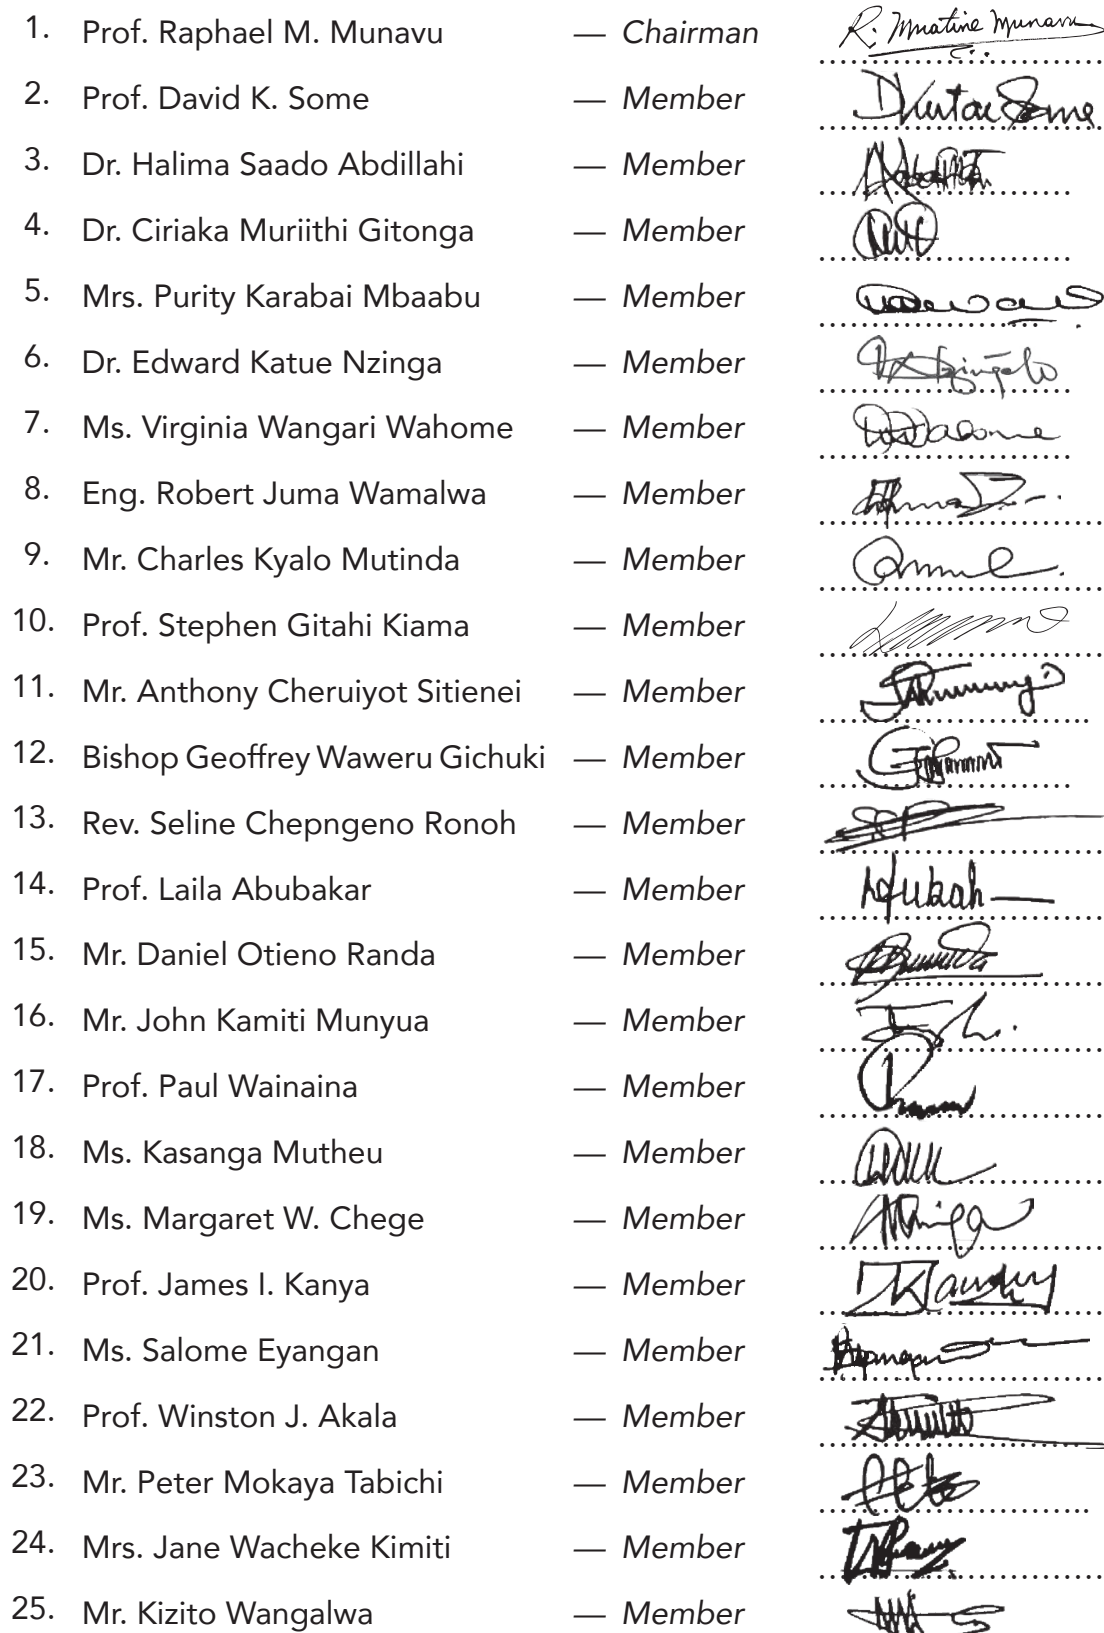 1. Prof. Raphael M. Munavu — Chairman R. Mwatine Munavu
2. Prof. David K. Some — Member DKurtai Some
3. Dr. Halima Saado Abdillahi — Member
4. Dr. Ciriaka Muriithi Gitonga — Member
5. Mrs. Purity Karabai Mbaabu — Member
6. Dr. Edward Katue Nzinga — Member
7. Ms. Virginia Wangari Wahome — Member
8. Eng. Robert Juma Wamalwa — Member
9. Mr. Charles Kyalo Mutinda — Member
10. Prof. Stephen Gitahi Kiama — Member
11. Mr. Anthony Cheruiyot Sitienei — Member
12. Bishop Geoffrey Waweru Gichuki — Member
13. Rev. Seline Chepngeno Ronoh — Member
14. Prof. Laila Abubakar — Member
15. Mr. Daniel Otieno Randa — Member
16. Mr. John Kamiti Munyua — Member
17. Prof. Paul Wainaina — Member
18. Ms. Kasanga Mutheu — Member
19. Ms. Margaret W. Chege — Member
20. Prof. James I. Kanya — Member
21. Ms. Salome Eyangan — Member
22. Prof. Winston J. Akala — Member
23. Mr. Peter Mokaya Tabichi — Member
24. Mrs. Jane Wacheke Kimiti — Member
25. Mr. Kizito Wangalwa — Member